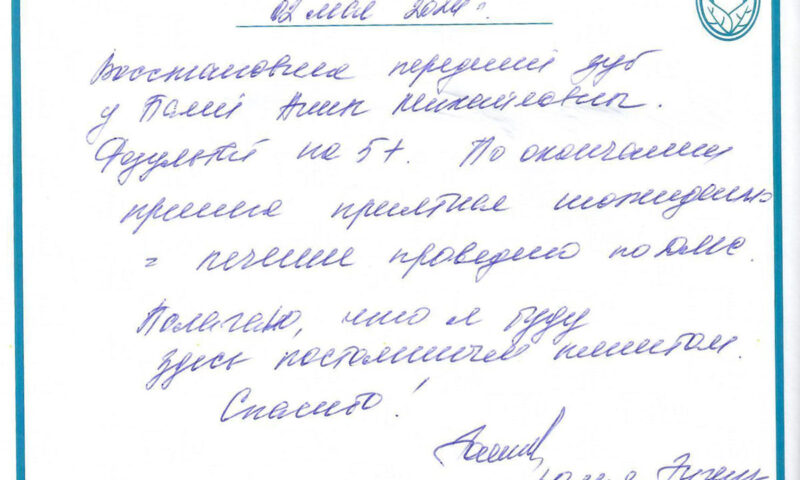 02 мая 2024 г.
Восстановила передний зуб
у Палий Анны Михайловны.
Результат на 5+. По окончании
приема приятная неожиданность
= лечение проведено по ДМС.
Полагаю, что я буду
здесь постоянным клиентом.
Спасибо!